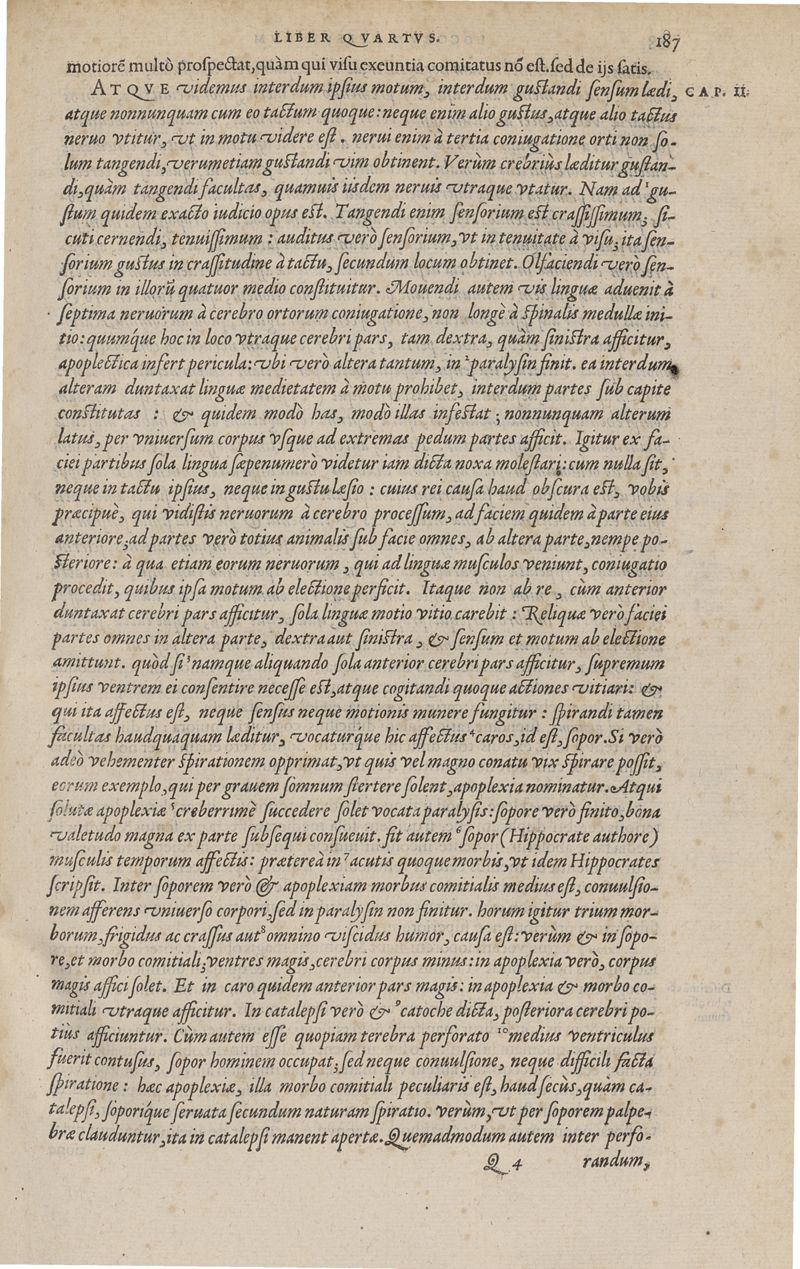 LIBER QVARTVS. 187
motiorẽ multò proſpectat,quàm qui viſu exeuntia comitatus nõ eſt.ſed de ijs ſatis.
ATQVE videmus interdum ipſius motum, interdum guſtandi ſenſum lædi, CAP. II.
atque nonnunquam cum eo tactum quoque:neque enim alio guſtus,atque alio tactus
neruo vtitur, vt in motu videre eſt. nerui enim à tertia coniugatione orti non ſo-
lum tangendi,verumetiam guſtandi vim obtinent. Verùm crebriùs læditur guſtan-
di,quàm tangendi facultas, quamuis iisdem neruis vtraque vtatur. Nam ad ¹gu-
ſtum quidem exacto iudicio opus eſt. Tangendi enim ſenſorium eſt craſſiſſimum, ſi-
cuti cernendi, tenuiſſimum : auditus verò ſenſorium,vt in tenuitate à viſu,ita ſen-
ſorium guſtus in craſſitudine à tactu, ſecundum locum obtinet. Olfaciendi verò ſen-
ſorium in illorũ quatuor medio conſtituitur. Mouendi autem vis linguæ aduenit à
ſeptima neruorum à cerebro ortorum coniugatione, non longè à ſpinalis medullæ ini-
tio:quumq́ue hoc in loco vtraque cerebri pars, tam dextra, quàm ſiniſtra afficitur,
apoplectica infert pericula:vbi verò altera tantum, in ²paralyſin finit. ea interdum
alteram duntaxat linguæ medietatem à motu prohibet, interdum partes ſub capite
conſtitutas : & quidem modò has, modò illas infeſtat ; nonnunquam alterum
latus, per vniuerſum corpus vſque ad extremas pedum partes afficit. Igitur ex fa-
ciei partibus ſola lingua ſæpenumerò videtur iam dicta noxa moleſtari:cum nulla ſit,
neque in tactu ipſius, neque in guſtu læſio : cuius rei cauſa haud obſcura eſt, vobis
præcipuè, qui vidiſtis neruorum à cerebro proceſſum, ad faciem quidem à parte eius
anteriore,ad partes verò totius animalis ſub facie omnes, ab altera parte,nempe po-
ſteriore: à qua etiam eorum neruorum , qui ad linguæ muſculos veniunt, coniugatio
procedit, quibus ipſa motum ab electione perficit. Itaque non ab re , cùm anterior
duntaxat cerebri pars afficitur, ſola linguæ motio vitio carebit : Reliquæ verò faciei
partes omnes in altera parte, dextra aut ſiniſtra , & ſenſum et motum ab electione
amittunt. quòd ſi ³namque aliquando ſola anterior cerebri pars afficitur, ſupremum
ipſius ventrem ei conſentire neceſſe eſt,atque cogitandi quoque actiones vitiari: &
qui ita affectus eſt, neque ſenſus neque motionis munere fungitur : ſpirandi tamen
facultas haudquaquam læditur, vocaturq́ue hic affectus ⁴caros,id eſt,ſopor.Si verò
adeò vehementer ſpirationem opprimat,vt quis vel magno conatu vix ſpirare poſſit,
eorum exemplo,qui per grauem ſomnum ſtertere ſolent,apoplexia nominatur.Atqui
ſolutæ apoplexiæ ⁵creberrimè ſuccedere ſolet vocata paralyſis:ſopore verò finito,bona
valetudo magna ex parte ſubſequi conſueuit. fit autem ⁶ſopor (Hippocrate authore)
muſculis temporum affectis: præterea in ⁷acutis quoque morbis,vt idem Hippocrates
ſcripſit. Inter ſoporem verò & apoplexiam morbus comitialis medius eſt, conuulſio-
nem afferens vniuerſo corpori,ſed in paralyſin non finitur. horum igitur trium mor-
borum,frigidus ac craſſus aut⁸ omnino viſcidus humor, cauſa eſt:verùm & in ſopo-
re,et morbo comitiali,ventres magis,cerebri corpus minus:in apoplexia verò, corpus
magis affici ſolet. Et in caro quidem anterior pars magis: in apoplexia & morbo co-
mitiali vtraque afficitur. In catalepſi verò & ⁹catoche dicta, poſteriora cerebri po-
tiùs afficiuntur. Cùm autem eſſe quopiam terebra perforato ¹⁰medius ventriculus
fuerit contuſus, ſopor hominem occupat,ſed neque conuulſione, neque difficili facta
ſpiratione : hæc apoplexiæ, illa morbo comitiali peculiaris eſt, haud ſecùs,quàm ca-
talepſi, ſoporiq́ue ſeruata ſecundum naturam ſpiratio. verùm,vt per ſoporem palpe-
bræ clauduntur,ita in catalepſi manent apertæ.Quemadmodum autem inter perfo-
Q 4 randum,